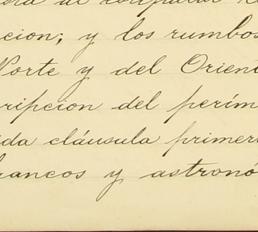 al compular
cion; y los rumbos
Norte y del Orien
ripcion del perím
ida cláusula primer
francos y astronó